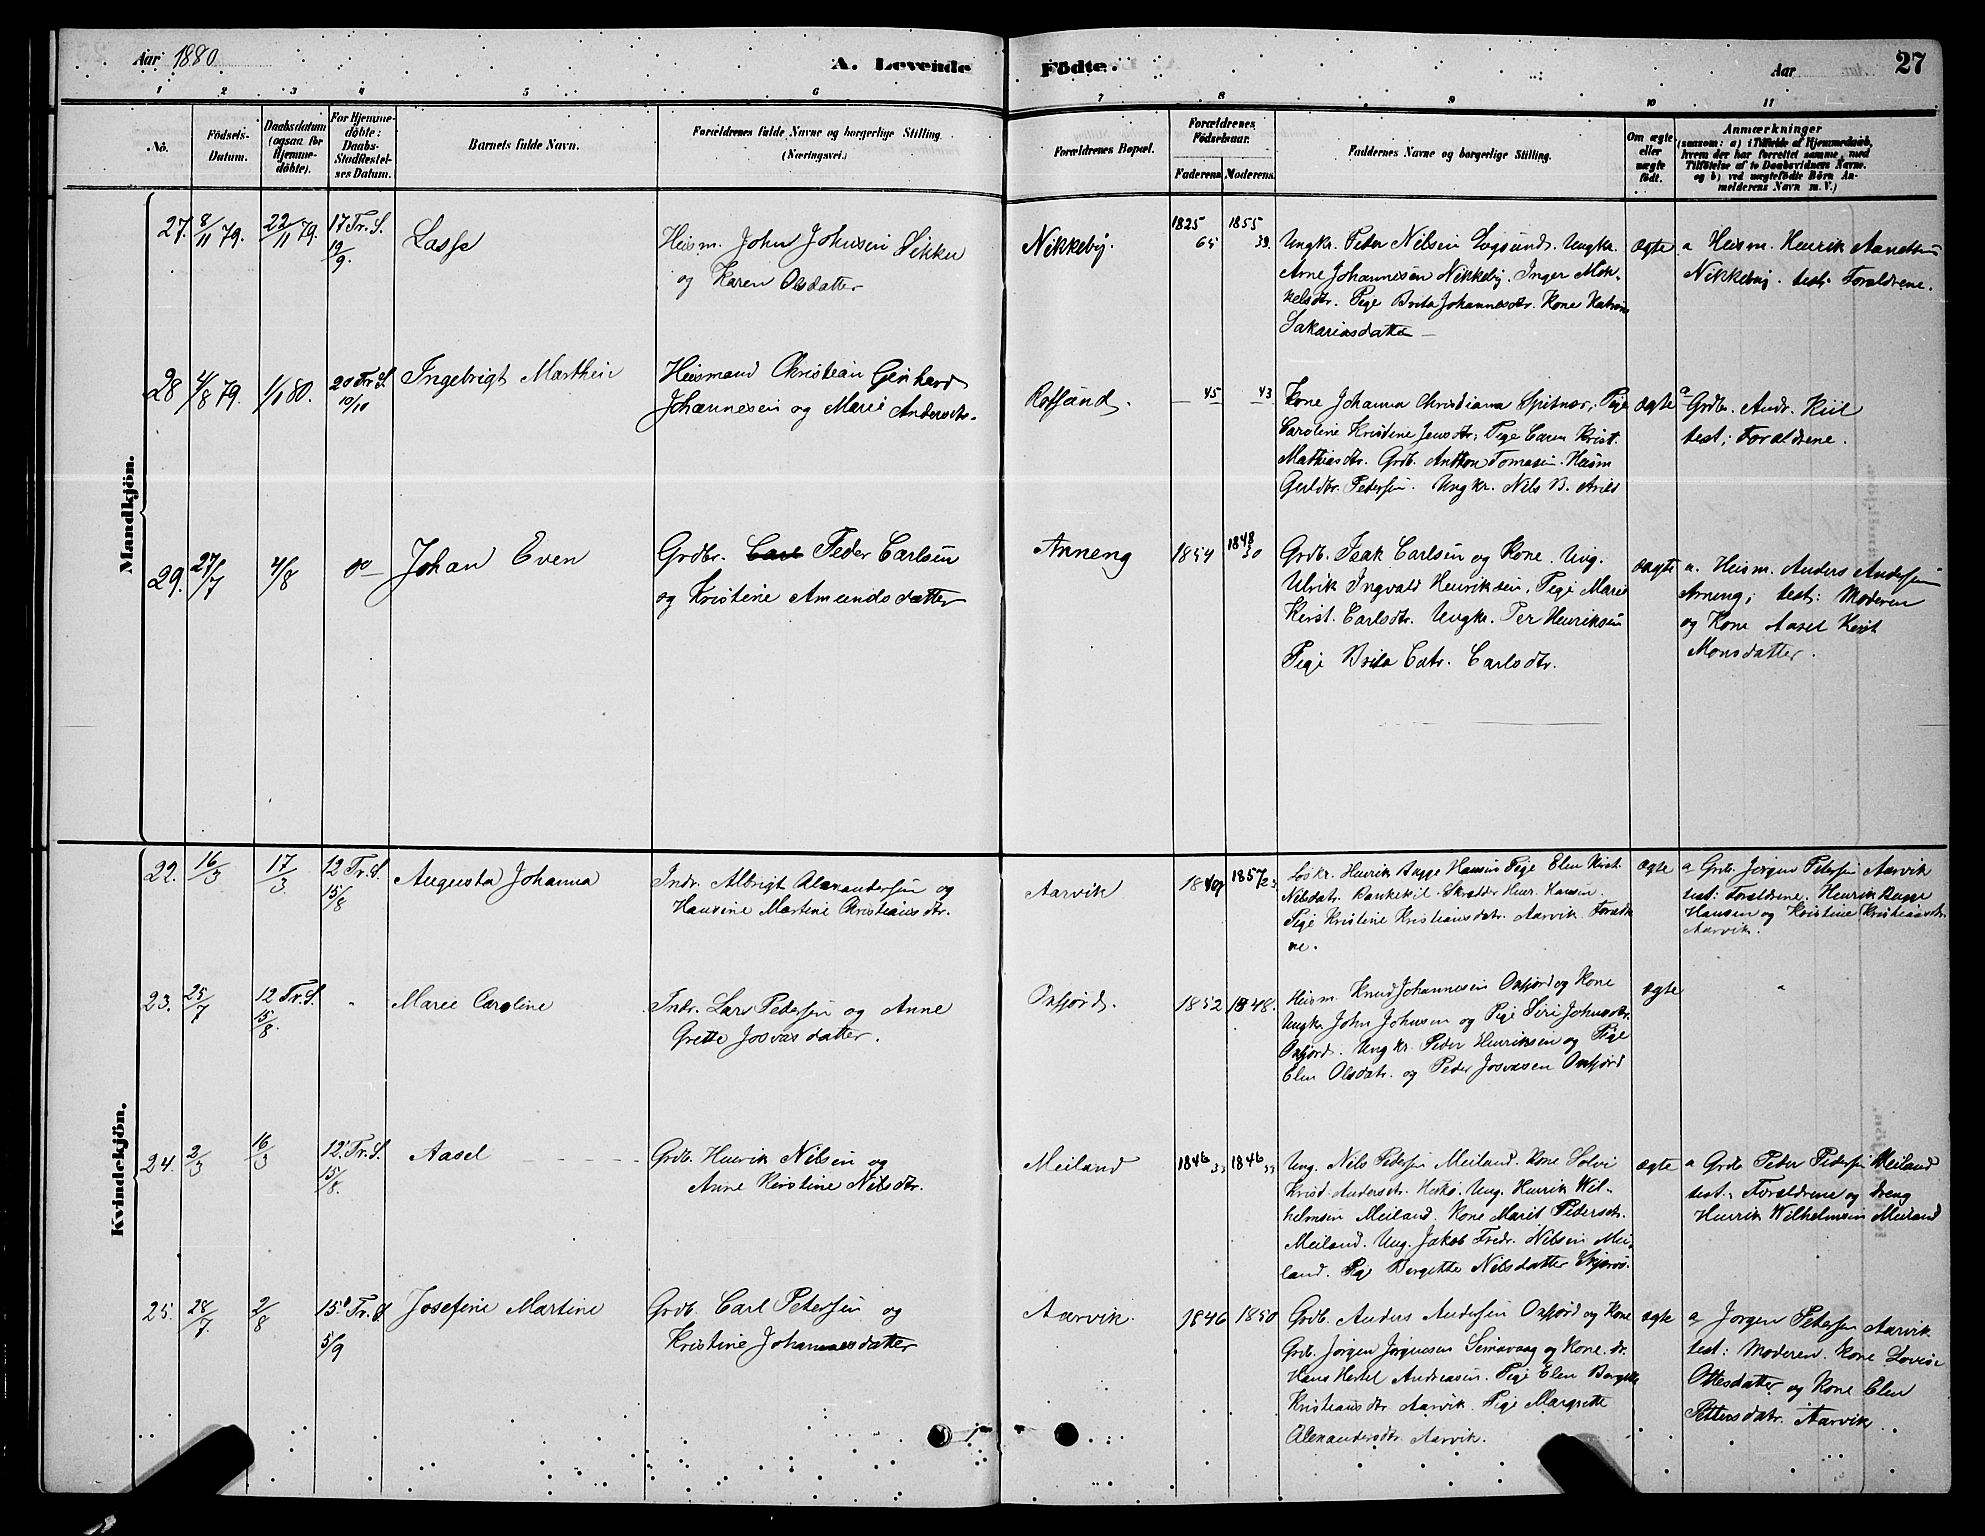 Aar 1880
A. Levende Födte.
Aar
27
1 2 3 4 5 6 7 8 9 10 11
No.
Födsels-
Datum.
Daabsdatum
(ogsaa for
Hjemme-
döbte).
For Hjemme-
döbte:
Daabs-
Stadfæstel-
ses Datum.
Barnets fulde Navn.
Forældrenes fulde Navne og borgerlige Stilling
(Næringsvei.)
Forældrenes Bopæl.
Forældrenes
Födselsaar.
Faderens Moderens
Faddernes Navne og borgerlige Stilling.
Om ægte
eller
uægte
født.
Anmærkninger
(saasom: a) i Tilfælde af Hjemmedaab,
hvem der har forrettet samme, med
Tilföielse af to Daabsvidners Navne.
og b) ved uægtefödte Börn An-
melderens Navn m. V.)
Mandkjön.
27. 8/11 79. 22/11 79. 17 Tr. S.
19/9
Lasse
Heism. John Johnsen Sikku
og Karen Olsdatter
Nikkeby.
1825 1855
Ungkr. Peder Nilsen Lögsund. Ungkr.
Arne Johannesen Nikkeby. Inger Mok-
kelsdtr. Pige Brita Johannesdtr. Kone
Sakariasdatter
ægte
a Heism. Henrik
Nikkeby. test: Forældrene.
28 4/8 79. 1/1 80. 20 Tr. S.
10/10
Ingebrigt Marthin
Heismand Christian Gerhard
Johannesen og Marie Andersdtr.
Rotsund.
45 43
Kone Johanna Christiana Spitnæs; Pige
Caroline Kristine Jensdtr; Pige Caren Krist.
Mathiasdtr. Grdb. Anthon Tomasen. Heism
Petersen. Ungkr. Nils B.
ægte
a Grdb. Andr. Kiil
test; Forældrene.
29. 27/7 4/8 do
Johan Even
Grdbr. Carl Peder Carlsen
og Kristine Amundsdatter
Anneng
1854 1848
Grdb. Isak Carlsen og Kone. Ung.
Ulrik Ingvald Henriksen. Pige Marie
Kirst. Carlsdtr. Ungkr. Per Henriksen
Pige Brita Catr. Carlsdtr.
ægte
a. Heism. Anders Andersen
Arneng; test: Moderen
og Kone Aasel Kirst
Monsdatter.
Kvindekjön.
22. 16/3 17/3 12 Tr. S.
15/8
Augusta Johanna
Indr. Albrigt Alexandersen og
Hansine Martine Christiansdtr.
Aarvik
1857
Loskr. Henrik Bugge Hansen Pige Elen Kirst.
Nilsdatr. Skrædder Henr. Hansen.
Pige Kristine Kristiansdatr. Aarvik. Foræld
ne.
ægte
a Grdb. Jørgen Petersen Aarvik
test: Forældrene. Henrik Bugge
Hansen og Kristine Kristiansdtr.
Aarvik.
23. 25/7 12 Tr. S.
15/8. "
Marie Caroline
Indr. Lars Pedersen og Anne
Grette Josvasdatter.
Oxfjord.
1852 1848.
Heism. Knud Johannesen Oxfjord og Kone
Ungkr John Johnsen og Pige Siri Johnsdtr.
Oxfjord. Ungkr. Peder Henriksen og Pige
Elen Olsdatr. og Peder Josvasen Oxfjord
ægte
"
24. 2/3 16/3 12 Tr. S.
15/8.
Aasel
Grdb. Henrik Nilsen og
Anne Kirstine Nilsdtr.
Meiland
1846 33 1846 33
Ung. Nils Pedersen Meiland. Kone Solvi
Krist. Andersdtr. Ung. Henrik Wil-
helmsen Meiland. Kone Marit Pedersdtr.
Meiland. Ung. Jakob Fredr. Nilsen Mei
land. Pige Bergette Nilsdatter Skjervø.
ægte
a Grdb Peder Pedersen Meiland
test: Forældrene og dreng
Henrik Wilhelmsen Meiland
25. 28/7. 2/8 15 Tr. S.
5/9
Josefine Martine
Grdb. Carl Petersen og
Kristine Johannesdatter
Aarvik.
1846 1850
Grdb. Anders Andersen Oxfjord og Kone
Grdb. Jørgen Jørgensen Simavaag og Kone. dr.
Hans Hertel Andreasen. Pige Elen Bergitte
Kristiansdtr Aarvik. Pige Margrette
Alexandersdtr Aarvik.
ægte
a Jørgen Petersen Aarvik
test: Moderen. Kone Lovise
Ottesdatter og Kone Elen
Pettersdatr. Aarvik.